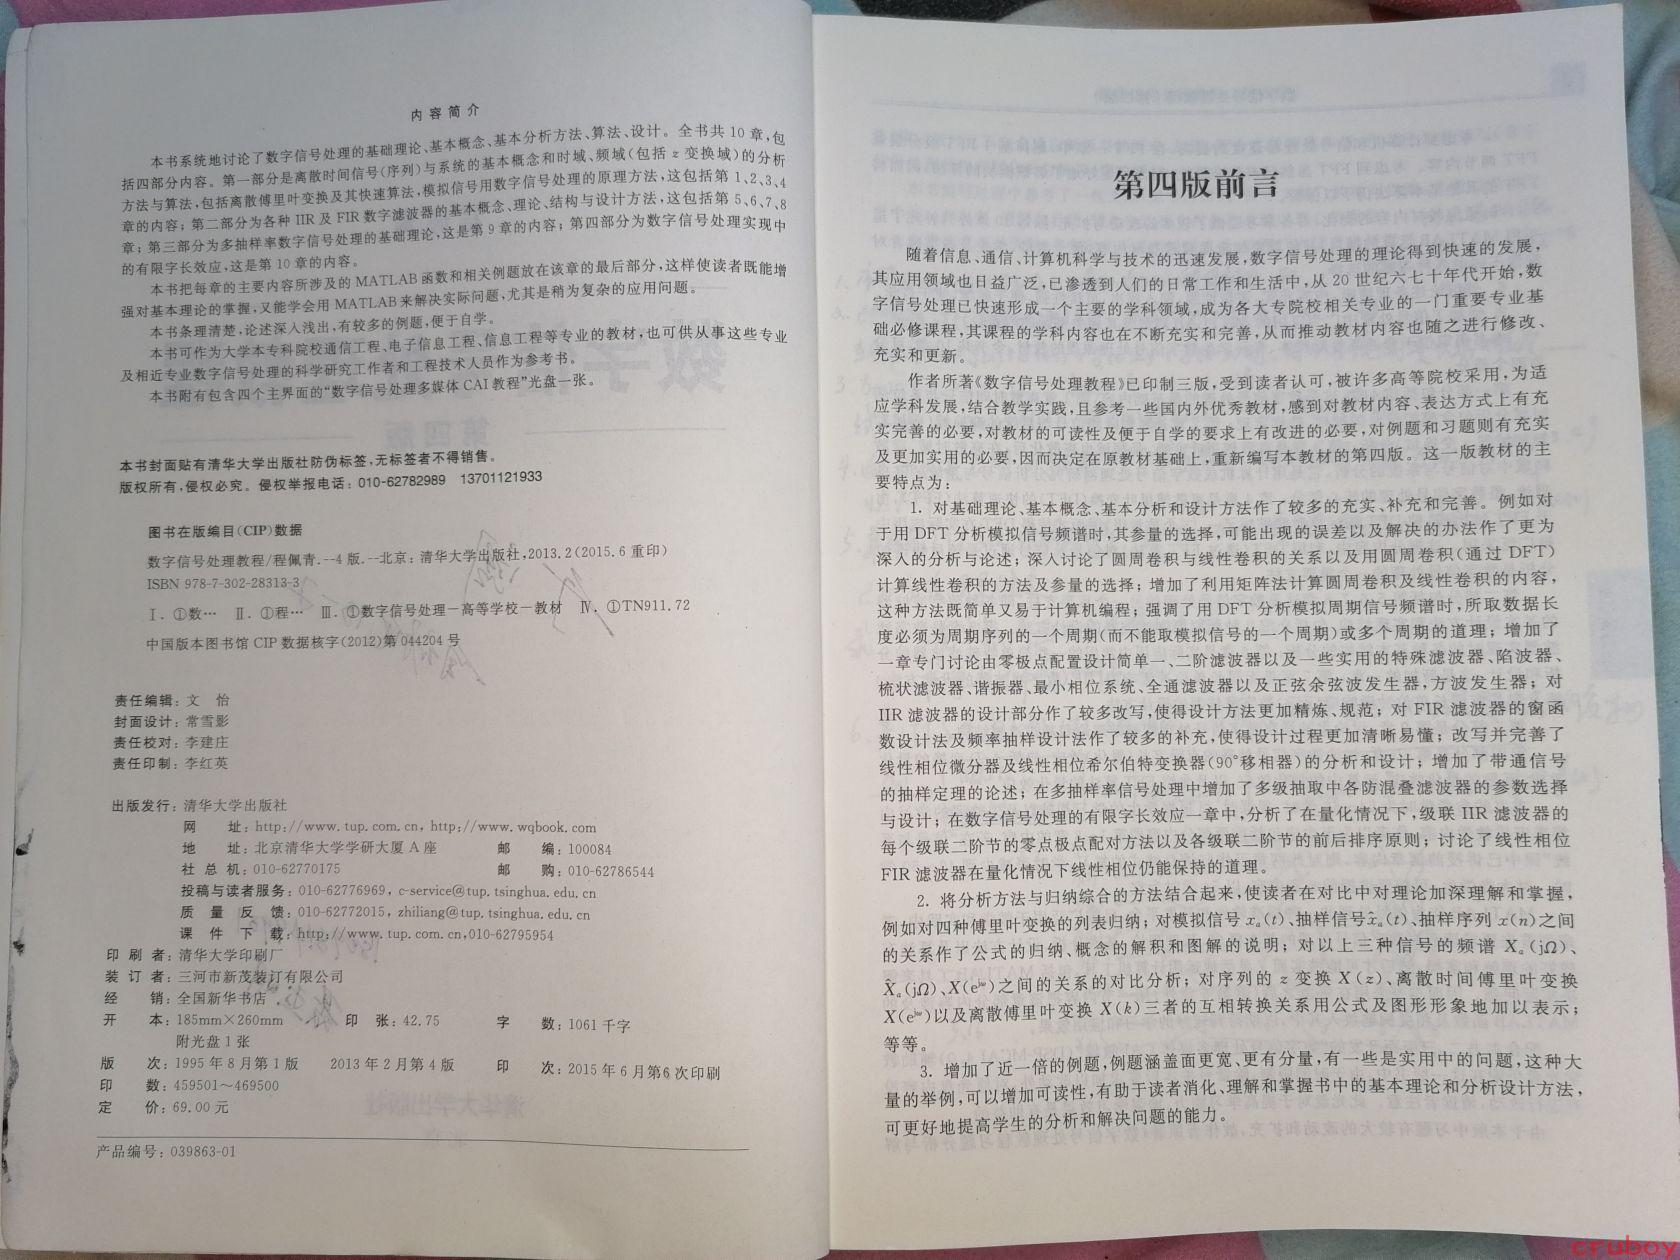 内容简介
本书系统地讨论了数字信号处理的基础理论、基本概念、基本分析方法、算法、设计。全书共 10 章,包
括四部分内容。第一部分是离散时间信号(序列)与系统的基本概念和时域、频域(包括 z 变换域)的分析
方法与算法,包括离散傅里叶变换及其快速算法,模拟信号用数字信号处理的原理方法,这包括第 1、2、3、4
章的内容；第二部分为各种 IIR 及 FIR 数字滤波器的基本概念、理论、结构与设计方法,这包括第 5、6、7、8
章；第三部分为多抽样率数字信号处理的基础理论,这是第 9 章的内容；第四部分为数字信号处理实现中
的有限字长效应,这是第 10 章的内容。
本书把每章的主要内容所涉及的 MATLAB 函数和相关例题放在该章的最后部分,这样使读者既能增
强对基本理论的掌握,又能学会用 MATLAB 来解决实际问题,尤其是稍为复杂的应用问题。
本书条理清楚,论述深入浅出,有较多的例题,便于自学。
本书可作为大学本专科院校通信工程、电子信息工程、信息工程等专业的教材,也可供从事这些专业
及相近专业数字信号处理的科学研究工作者和工程技术人员作为参考书。
本书附有包含四个主界面的“数字信号处理多媒体 CAI 教程”光盘一张。
本书封面贴有清华大学出版社防伪标签,无标签者不得销售。
版权所有,侵权必究。侵权举报电话：010-62782989 13701121933
图书在版编目(CIP)数据
数字信号处理教程/程佩青.--4 版.--北京：清华大学出版社,2013.2(2015.6 重印)
ISBN 978-7-302-28313-3
Ⅰ. ①数… Ⅱ. ①程… Ⅲ. ①数字信号处理－高等学校－教材 Ⅳ. ①TN911.72
中国版本图书馆 CIP 数据核字(2012)第 044204 号
责任编辑：文 怡
封面设计：常雪影
责任校对：李建庄
责任印制：李红英
出版发行：清华大学出版社
网 址：http://www.tup.com.cn, http://www.wqbook.com
地 址：北京清华大学学研大厦 A 座 邮 编：100084
社 总 机：010-62770175 邮 购：010-62786544
投稿与读者服务：010-62776969, c-service@tup.tsinghua.edu.cn
质 量 反 馈：010-62772015, zhiliang@tup.tsinghua.edu.cn
课 件 下 载：http://www.tup.com.cn,010-62795954
印 刷 者：清华大学印刷厂
装 订 者：三河市新茂装订有限公司
经 销：全国新华书店
开 本：185mm×260mm 印 张：42.75 字 数：1061 千字
附光盘 1 张
版 次：1995 年 8 月第 1 版 2013 年 2 月第 4 版 印 次：2015 年 6 月第6 次印刷
印 数：459501～469500
定 价：69.00 元
产品编号：039863-01
第四版前言
随着信息、通信、计算机科学与技术的迅速发展,数字信号处理的理论得到快速的发展,
其应用领域也日益广泛,已渗透到人们的日常工作和生活中,从 20 世纪六七十年代开始,数
字信号处理已快速形成一个主要的学科领域,成为各大专院校相关专业的一门重要专业基
础必修课程,其课程的学科内容也在不断充实和完善,从而推动教材内容也随之进行修改、
充实和更新。
作者所著《数字信号处理教程》已印制三版,受到读者认可,被许多高等院校采用,为适
应学科发展,结合教学实践,且参考一些国内外优秀教材,感到对教材内容、表达方式上有充
实完善的必要,对教材的可读性及便于自学的要求上有改进的必要,对例题和习题则有充实
及更加实用的必要,因而决定在原教材基础上,重新编写本教材的第四版。这一版教材的主
要特点为：
1. 对基础理论、基本概念、基本分析和设计方法作了较多的充实、补充和完善。例如对
于用 DFT 分析模拟信号频谱时,其参量的选择,可能出现的误差以及解决的办法作了更为
深入的分析与论述；深入讨论了圆周卷积与线性卷积的关系以及用圆周卷积(通过 DFT)
计算线性卷积的方法及参量的选择；增加了利用矩阵法计算圆周卷积及线性卷积的内容,
这种方法既简单又易于计算机编程；强调了用 DFT 分析模拟周期信号频谱时,所取数据长
度必须为周期序列的一个周期(而不能取模拟信号的一个周期)或多个周期的道理；增加了
一章专门讨论由零极点配置设计简单一、二阶滤波器以及一些实用的特殊滤波器、陷波器、
梳状滤波器、谐振器、最小相位系统、全通滤波器以及正弦余弦波发生器,方波发生器；对
IIR 滤波器的设计部分作了较多改写,使得设计方法更加精炼、规范；对 FIR 滤波器的窗函
数设计法及频率抽样设计法作了较多的补充,使得设计过程更加清晰易懂；改写并完善了
线性相位微分器及线性相位希尔伯特变换器(90°移相器)的分析和设计；增加了带通信号
的抽样定理的论述；在多抽样率信号处理中增加了多级抽取中各防混叠滤波器的参数选择
与设计；在数字信号处理的有限字长效应一章中,分析了在量化情况下,级联 IIR 滤波器的
每个级联二阶节的零点极点配对方法以及各级联二阶节的前后排序原则；讨论了线性相位
FIR 滤波器在量化情况下线性相位仍能保持的道理。
2. 将分析方法与归纳综合的方法结合起来,使读者在对比中对理论加深理解和掌握,
例如对四种傅里叶变换的列表归纳；对模拟信号 xₐ(t)、抽样信号 x̂ₐ(t)、抽样序列 x(n)之间
的关系作了公式的归纳、概念的解积和图解的说明；对以上三种信号的频谱 Xₐ(jΩ)、
X̂ₐ(jΩ)、X(e^{jω})之间的关系的对比分析；对序列的 z 变换 X(z)、离散时间傅里叶变换
X(e^{jω})以及离散傅里叶变换 X(k)三者的互相转换关系用公式及图形形象地加以表示；
等等。
3. 增加了近一倍的例题,例题涵盖面更宽、更有分量,有一些是实用中的问题,这种大
量的举例,可以增加可读性,有助于读者消化、理解和掌握书中的基本理论和分析设计方法,
可更好地提高学生的分析和解决问题的能力。
cruboy